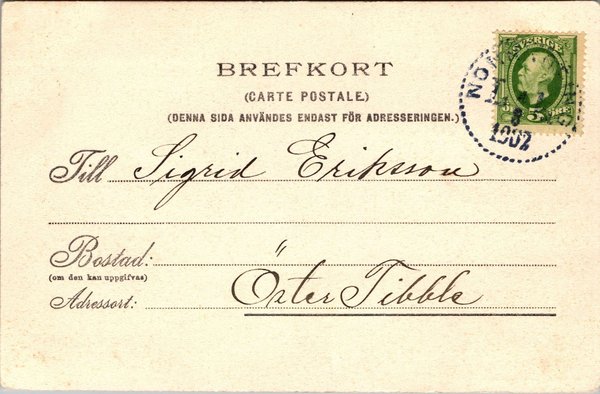 BREFKORT
(CARTE POSTALE.)
(DENNA SIDA ANVÄNDES ENDAST FÖR ADRESSERINGEN.)
SVERIGE
5 5 ÖRE
8
1902
Till Sigrid Eriksson
Bostad:
(om den kan uppgifvas)
Adressort: Öster Tibble